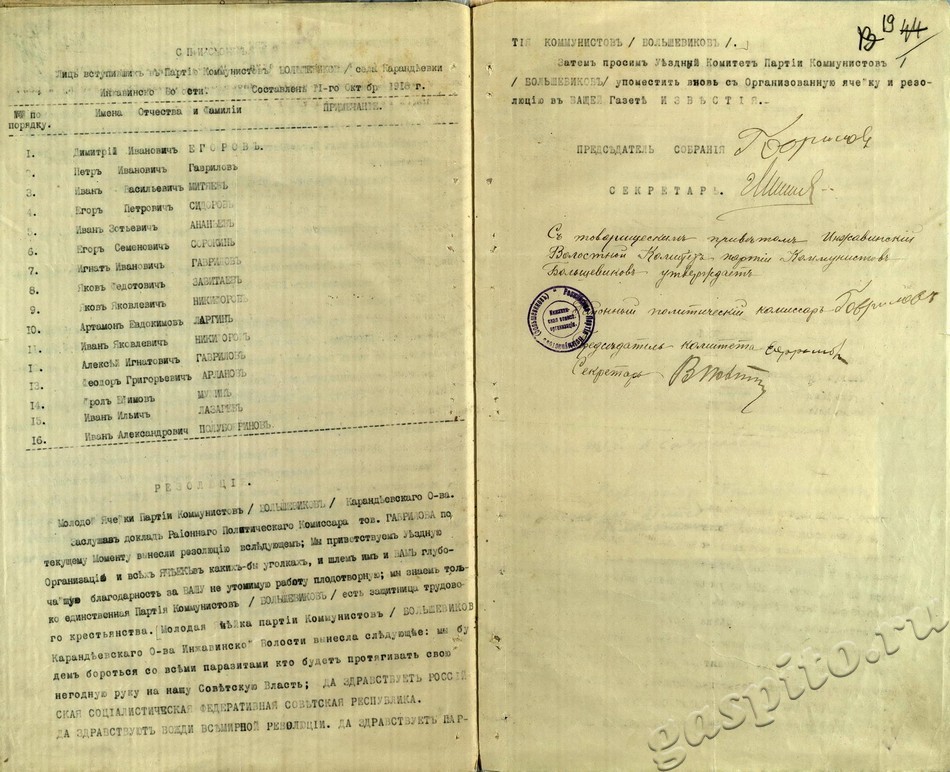 СПИСОКЪ
Лицъ вступившихъ въ Партію Коммунистовъ/ БОЛЬШЕВИКОВЪ/ села Карандѣевки
Инжавинской Волости. Составленъ 11-го Октября 1918 г.
№№ по порядку. Имена Отчества и Фамиліи ПРИМѢЧАНІЕ.
1. Димитрій Ивановичъ ЕГОРОВЪ.
2. Петръ Ивановичъ Гавриловъ
3. Иванъ Васильевичъ МИТЯЕВЪ
4. Егоръ Петровичъ СИДОРОВЪ
5. Иванъ Зотьевичъ АНАНЬЕВЪ
6. Егоръ Семеновичъ СОРОКИНЪ
7. Игнатъ Ивановичъ ГАВРИЛОВЪ
8. Яковъ Федотовичъ ЗАВИТАЕВЪ
9. Яковъ Яковлевичъ НИКИФОРОВЪ
10. Артамонъ Евдокимовъ ЛАРГИНЪ
11. Иванъ Яковлевичъ НИКИФОРОВЪ
1 . Алексѣй Игнатовичъ ГАВРИЛОВЪ
13. Ѳеодоръ Григорьевичъ АРЛАНОВЪ
14. Фролъ Ефимовъ
15. Иванъ Ильичъ ЛАЗАРЕВЪ
16. Иванъ Александрович ПОЛУБОЯРИНОВЪ.
РЕЗОЛЮЦІЯ.
Молодой Ячейки Партіи Коммунистовъ / БОЛЬШЕВИКОВЪ / Карандѣевскаго О-ва.
Заслушавъ докладъ Районнаго Политическаго Комиссара тов. ГАВРИЛОВА по
текущему Моменту вынесли резолюцію вслѣдующемъ; Мы привѣтствуемъ Уѣздную
Организацію и всѣхъ ЯЧЕЕКЪ въ какихъ-бы уголкахъ, и шлемъ имъ и ВАМЪ глубо-
чайшую благодарность за ВАШУ не утомимую работу плодотворную; мы знаемъ толь-
ко единственная Партія Коммунистовъ / БОЛЬШЕВИКОВЪ / есть защитница трудово-
го крестьянства. Молодая Ячейка партіи Коммунистовъ / БОЛЬШЕВИКОВ
Карандѣевскаго О-ва Инжавинской Волости вынесла слѣдующее: мы бу
демъ бороться со всѣми паразитами кто будетъ протягивать свою
негодную руку на нашу Совѣтскую Власть; ДА ЗДРАВСТВУЕТЪ РОССІЙ
СКАЯ СОЦІАЛИСТИЧЕСКАЯ ФЕДЕРАТИВНАЯ СОВѢТСКАЯ РЕСПУБЛИКА.
ДА ЗДРАВСТВУЮТЪ ВОЖДИ ВСЕМІРНОЙ РЕВОЛЮЦІИ. ДА ЗДРАВСТВУЕТЪ ПАР-
19 44
ТІЯ КОММУНИСТОВЪ / БОЛЬШЕВИКОВЪ /.
Затем просимъ Уѣздный Комитетъ Партіи Коммунистовъ
/ БОЛЬШЕВИКОВЪ/ упомѣстить вновь съ Организованную ячейку и резо-
люцію въ ВАШЕЙ Газетѣ ИЗВѢСТІЯ.
ПРЕДСѢДАТЕЛЬ СОБРАНІЯ
СЕКРЕТАРЬ.
Съ товарищескимъ привѣтомъ Инжавинскій
Волостной Комитетъ партіи Коммунистовъ
Большевиковъ утверждаетъ
Районный политическій комиссаръ Гавриловъ
Предсѣдатель комитета
Секретарь
gaspito.ru